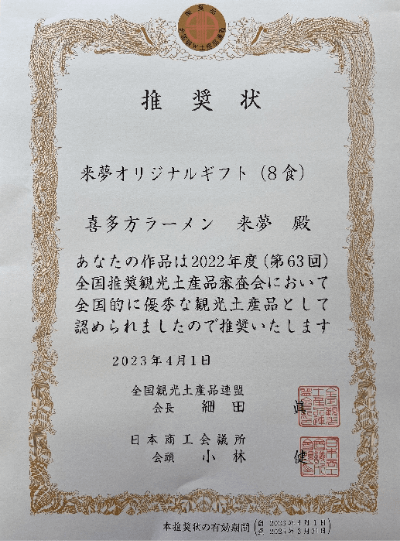 推奨状
来夢オリジナルギフト（8食）
喜多方ラーメン 来夢 殿
あなたの作品は2022年度（第63回）
全国推奨観光土産品審査会において
全国的に優秀な観光土産品として
認められましたので推奨いたします
2023年4月1日
全国観光土産品連盟
会長 細田 眞
日本商工会議所
会頭 小林 健
本推奨状の有効期間
自 2023年4月1日